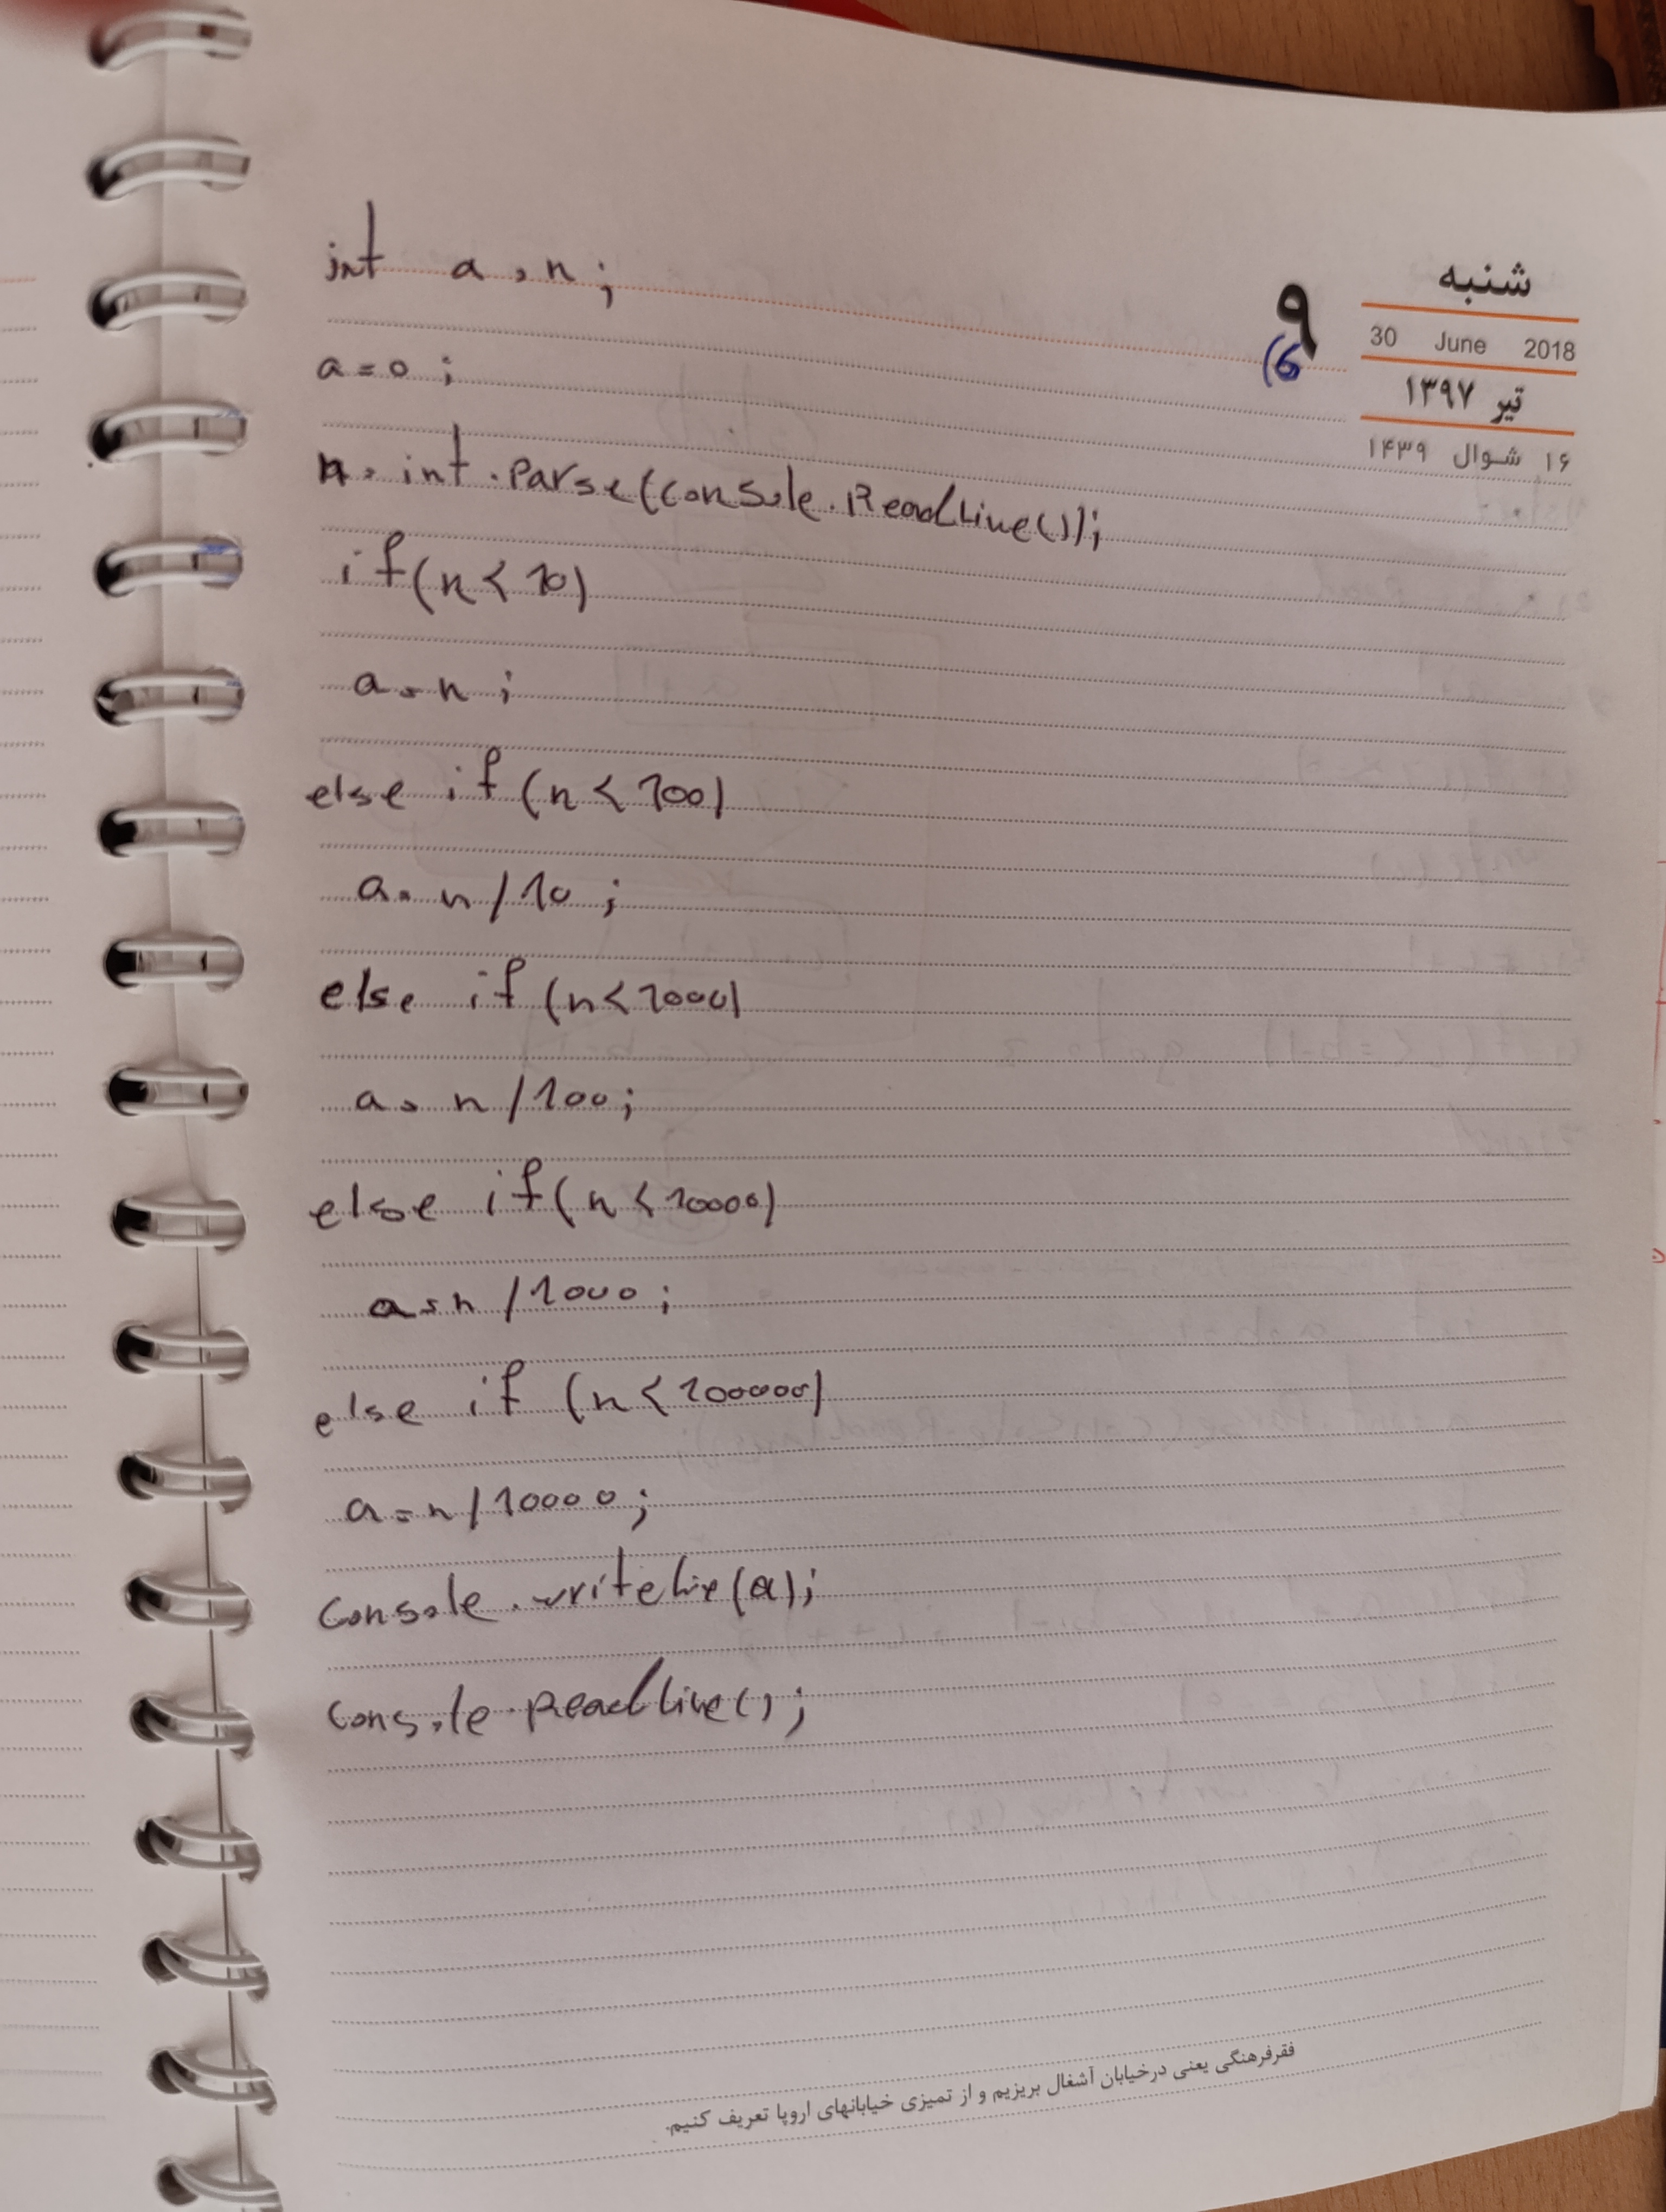 شنبه
30 June 2018
تیر ۱۳۹۷
۱۶ شوال ۱۴۳۹
۹
(6
int a , n ;
a = 0 ;
n = int . Parse (console . ReadLine ( ) ) ;
if (n < 10)
a = n ;
else if (n < 100)
a = n / 10 ;
else if (n < 1000)
a = n / 100 ;
else if (n < 10000)
a = n / 1000 ;
else if (n < 100000)
a = n / 10000 ;
console . writeline (a) ;
console . ReadLine ( ) ;
فقرفرهنگی یعنی درخیابان آشغال بریزیم و از تمیزی خیابانهای اروپا تعریف کنیم.